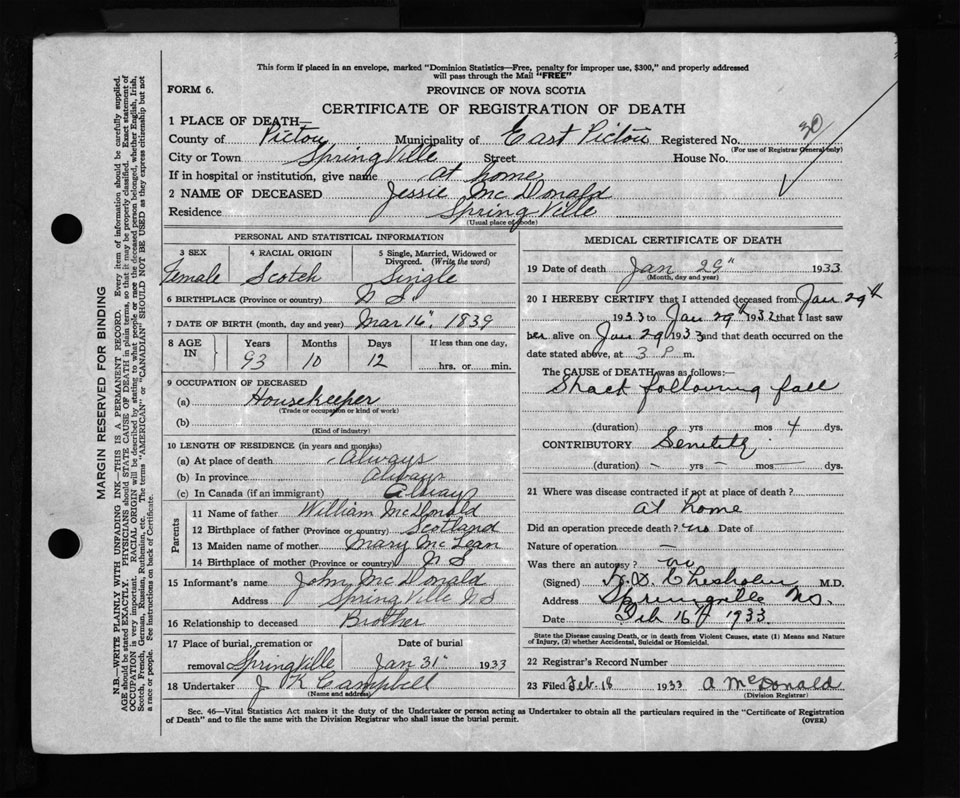 This form if placed in an envelope, marked "Dominion Statistics—Free, penalty for improper use, $300," and properly addressed
will pass through the Mail "FREE"
FORM 6.
PROVINCE OF NOVA SCOTIA
CERTIFICATE OF REGISTRATION OF DEATH
1 PLACE OF DEATH—
County of Pictou Municipality of East Pictou Registered No. 30
(For use of Registrar General only)
City or Town SpringVille Street House No.
If in hospital or institution, give name at home
2 NAME OF DECEASED Jessie McDonald
Residence SpringVille
(Usual place of abode)
PERSONAL AND STATISTICAL INFORMATION
3 SEX 4 RACIAL ORIGIN 5 Single, Married, Widowed or Divorced. (Write the word)
Female Scotch Single
6 BIRTHPLACE (Province or country) N S
7 DATE OF BIRTH (month, day and year) Mar 16", 1839
8 AGE IN Years Months Days If less than one day,
93 10 12 hrs. or min.
9 OCCUPATION OF DECEASED
(a) Housekeeper
(Trade or occupation or kind of work)
(b)
(Kind of industry)
10 LENGTH OF RESIDENCE (in years and months)
(a) At place of death Always
(b) In province Always
(c) In Canada (if an immigrant) Always
Parents
11 Name of father William McDonald
12 Birthplace of father (Province or country) Scotland
13 Maiden name of mother Mary McLean
14 Birthplace of mother (Province or country) N S
15 Informant's name John McDonald
Address SpringVille N S
16 Relationship to deceased Brother
17 Place of burial, cremation or Date of burial
removal SpringVille Jan 31" 1933
18 Undertaker J K Campbell
(Name and address)
MEDICAL CERTIFICATE OF DEATH
19 Date of death Jan 29" 1933
(Month, day and year)
20 I HEREBY CERTIFY that I attended deceased from Jan 29th
1933 to Jan 29th 1932 that I last saw
her alive on Jan 29 1933 and that death occurred on the
date stated above, at 3 P m.
The CAUSE of DEATH was as follows:—
Shack following fall
(duration) yrs mos 4 dys.
CONTRIBUTORY
(duration) — yrs — mos — dys.
21 Where was disease contracted if not at place of death?
at home
Did an operation precede death? no Date of
Nature of operation —
Was there an autopsy? no
(Signed) Chisholm M.D.
Address Springville N.S.
Date Feb 16 1933
State the Disease causing Death, or in death from Violent Causes, state (1) Means and Nature
of Injury, (2) whether Accidental, Suicidal or Homicidal.
22 Registrar's Record Number
23 Filed Feb. 18 1933 A McDonald
(Division Registrar)
Sec. 46—Vital Statistics Act makes it the duty of the Undertaker or person acting as Undertaker to obtain all the particulars required in the "Certificate of Registration
of Death" and to file the same with the Division Registrar who shall issue the burial permit.
(OVER)
MARGIN RESERVED FOR BINDING
N.B.—WRITE PLAINLY WITH UNFADING INK—THIS IS A PERMANENT RECORD. Every item of information should be carefully supplied.
AGE should be stated EXACTLY. PHYSICIANS should STATE CAUSE OF DEATH in plain terms, so that it may be properly classified. Exact statement of
OCCUPATION is very important. RACIAL ORIGIN will be described by stating to what people or race the deceased person belonged, whether English, Irish,
Scotch, French, German, Russian, Ruthenian, etc. The terms "AMERICAN" or "CANADIAN" SHOULD NOT BE USED as they express citizenship but not
a race or people. See instructions on back of Certificate.